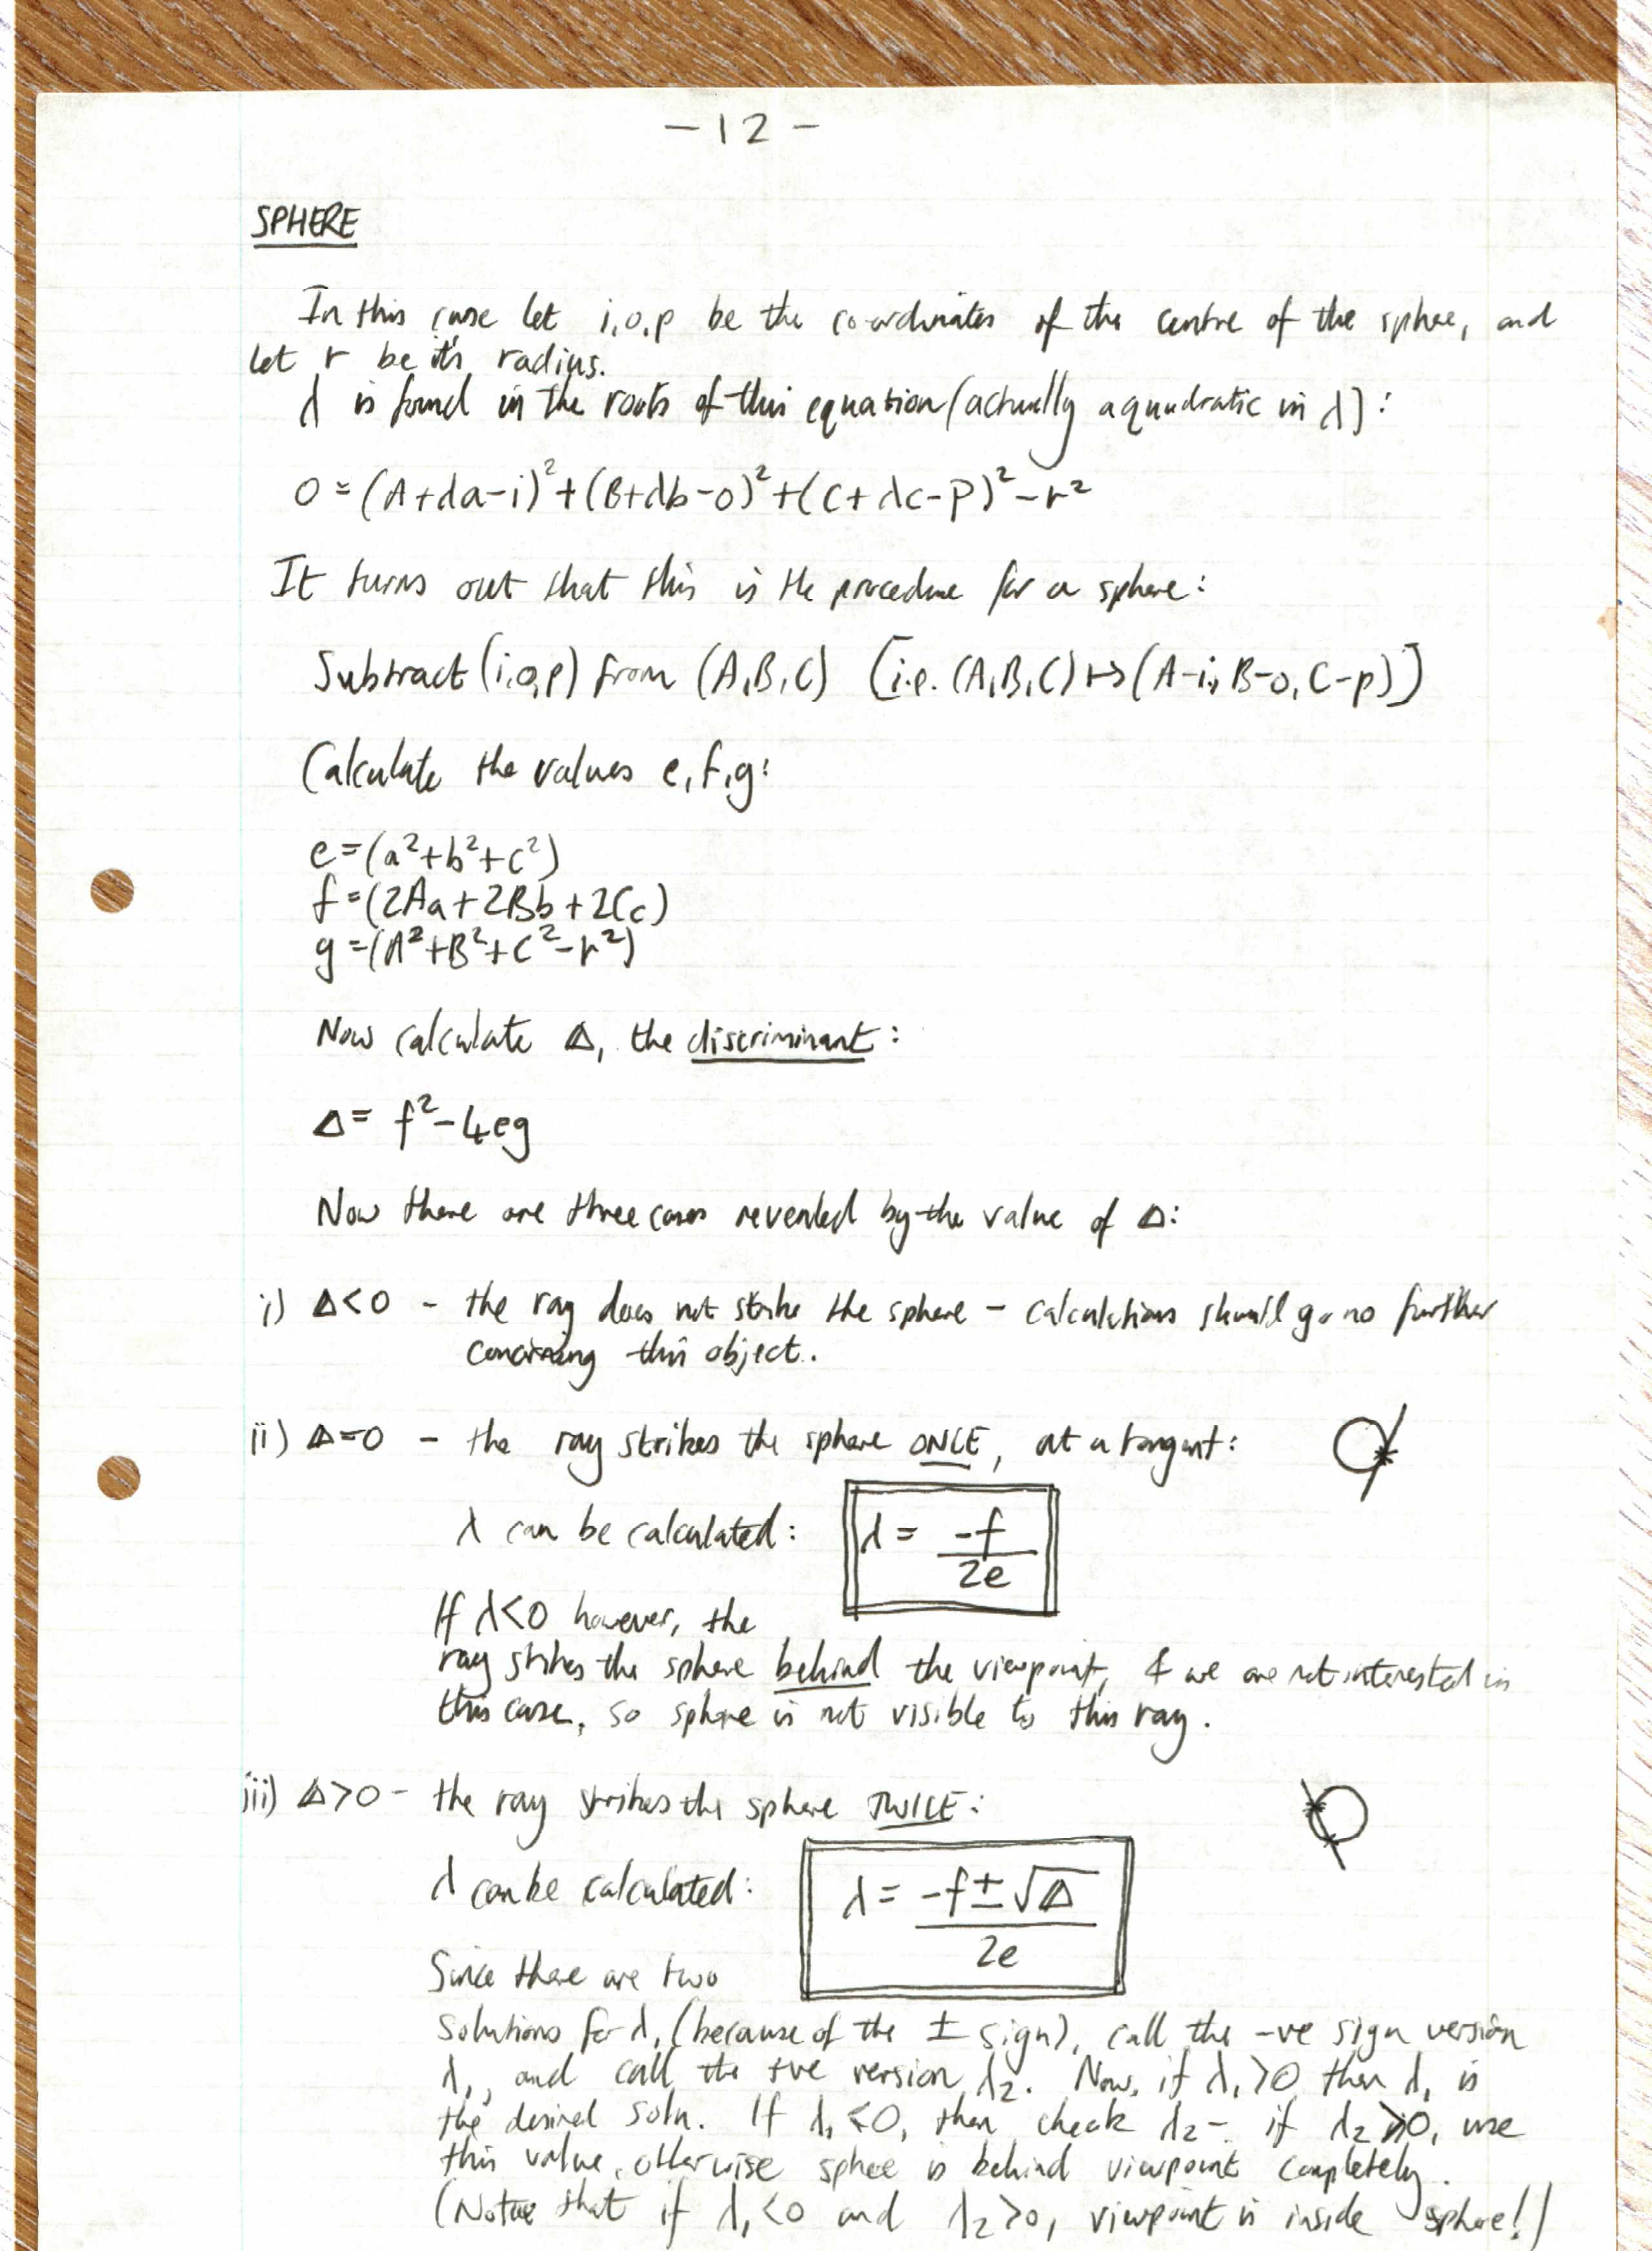 -12-
SPHERE
In this case let i,o,p be the co-ordinates of the centre of the sphere, and
let r be it's radius.
λ is found in the roots of this equation (actually a quadratic in λ):
0 = (A+λa-i)²+(B+λb-o)²+(C+λc-p)²-r²
It turns out that this is the procedure for a sphere:
Subtract (i,o,p) from (A,B,C) [i.e. (A,B,C)↦(A-i, B-o, C-p)]
Calculate the values e,f,g:
e=(a²+b²+c²)
f=(2Aa+2Bb+2Cc)
g=(A²+B²+C²-r²)
Now calculate Δ, the discriminant:
Δ= f²-4eg
Now there are three cases revealed by the value of Δ:
i) Δ<0 - the ray does not strike the sphere - calculations should go no further
concerning this object.
ii) Δ=0 - the ray strikes the sphere ONCE, at a tangent:
λ can be calculated: λ = -f/2e
If λ<0 however, the
ray strikes the sphere behind the viewpoint, & we are not interested in
this case, so sphere is not visible to this ray.
iii) Δ>0 - the ray strikes the sphere TWICE:
λ can be calculated: λ = -f±√Δ/2e
Since there are two
solutions for λ, (because of the ± sign), call the -ve sign version
λ₁, and call the +ve version λ₂. Now, if λ₁>0 then λ₁ is
the desired soln. If λ₁≤0, then check λ₂ - if λ₂>0, use
this value, otherwise sphere is behind viewpoint completely.
(Notice that if λ₁<0 and λ₂>0, viewpoint is inside sphere!)